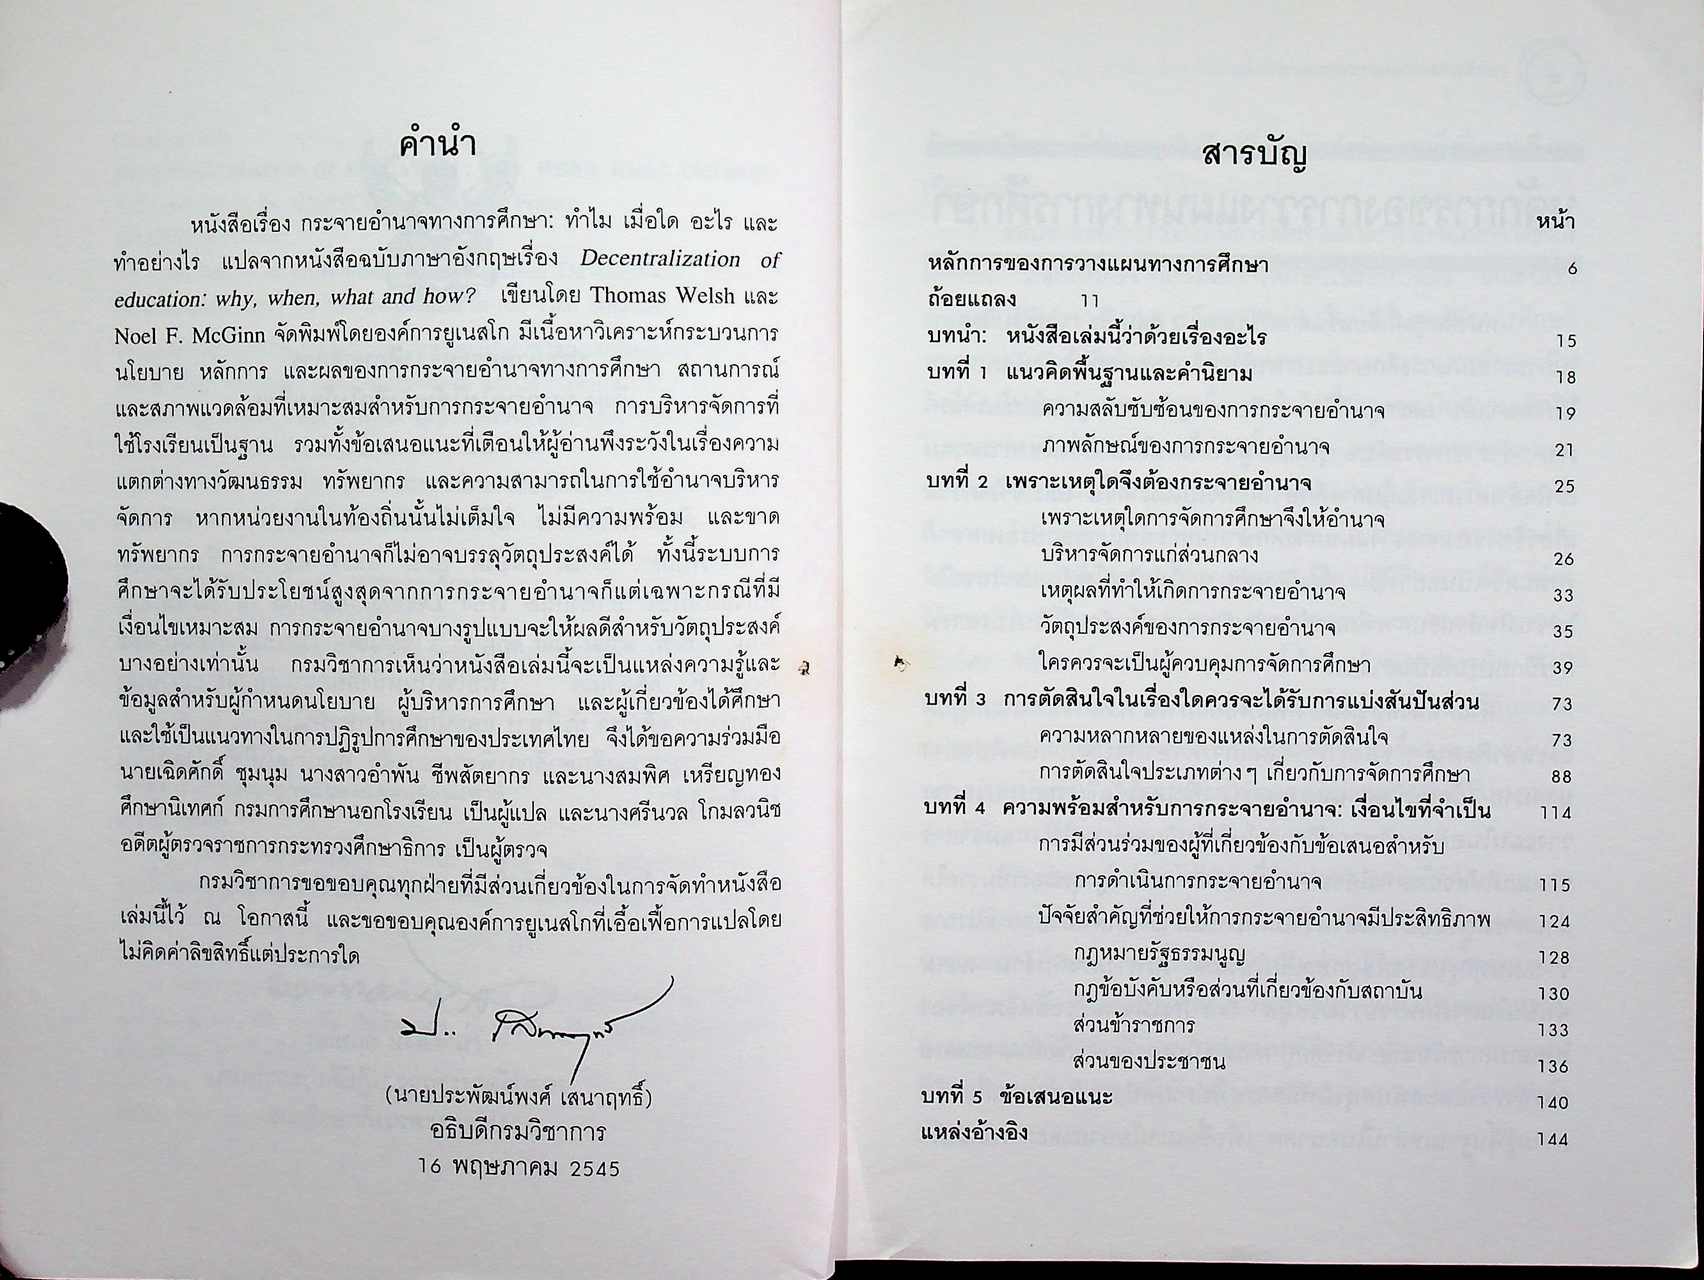 คำนำ
หนังสือเรื่อง กระจายอำนาจทางการศึกษา: ทำไม เมื่อใด อะไร และ
ทำอย่างไร แปลจากหนังสือฉบับภาษาอังกฤษเรื่อง Decentralization of
education: why, when, what and how? เขียนโดย Thomas Welsh และ
Noel F. McGinn จัดพิมพ์โดยองค์การยูเนสโก มีเนื้อหาวิเคราะห์กระบวนการ
นโยบาย หลักการ และผลของการกระจายอำนาจทางการศึกษา สถานการณ์
และสภาพแวดล้อมที่เหมาะสมสำหรับการกระจายอำนาจ การบริหารจัดการที่
ใช้โรงเรียนเป็นฐาน รวมทั้งข้อเสนอแนะที่เตือนให้ผู้อ่านพึงระวังในเรื่องความ
แตกต่างทางวัฒนธรรม ทรัพยากร และความสามารถในการใช้อำนาจบริหาร
จัดการ หากหน่วยงานในท้องถิ่นนั้นไม่เต็มใจ ไม่มีความพร้อม และขาด
ทรัพยากร การกระจายอำนาจก็ไม่อาจบรรลุวัตถุประสงค์ได้ ทั้งนี้ระบบการ
ศึกษาจะได้รับประโยชน์สูงสุดจากการกระจายอำนาจก็แต่เฉพาะกรณีที่มี
เงื่อนไขเหมาะสม การกระจายอำนาจบางรูปแบบจะให้ผลดีสำหรับวัตถุประสงค์
บางอย่างเท่านั้น กรมวิชาการเห็นว่าหนังสือเล่มนี้จะเป็นแหล่งความรู้และ
ข้อมูลสำหรับผู้กำหนดนโยบาย ผู้บริหารการศึกษา และผู้เกี่ยวข้องได้ศึกษา
และใช้เป็นแนวทางในการปฏิรูปการศึกษาของประเทศไทย จึงได้ขอความร่วมมือ
นายเฉิดศักดิ์ ชุมนุม นางสาวอำพัน ชีพสัตยากร และนางสมพิศ เหรียญทอง
ศึกษานิเทศก์ กรมการศึกษานอกโรงเรียน เป็นผู้แปล และนางศรีนวล โกมลวนิช
อดีตผู้ตรวจราชการกระทรวงศึกษาธิการ เป็นผู้ตรวจ
กรมวิชาการขอขอบคุณทุกฝ่ายที่มีส่วนเกี่ยวข้องในการจัดทำหนังสือ
เล่มนี้ไว้ ณ โอกาสนี้ และขอขอบคุณองค์การยูเนสโกที่เอื้อเฟื้อการแปลโดย
ไม่คิดค่าลิขสิทธิ์แต่ประการใด
(นายประพัฒน์พงศ์ เสนาฤทธิ์)
อธิบดีกรมวิชาการ
16 พฤษภาคม 2545
สารบัญ
หน้า
หลักการของการวางแผนทางการศึกษา 6
ถ้อยแถลง 11
บทนำ: หนังสือเล่มนี้ว่าด้วยเรื่องอะไร 15
บทที่ 1 แนวคิดพื้นฐานและคำนิยาม 18
ความสลับซับซ้อนของการกระจายอำนาจ 19
ภาพลักษณ์ของการกระจายอำนาจ 21
บทที่ 2 เพราะเหตุใดจึงต้องกระจายอำนาจ 25
เพราะเหตุใดการจัดการศึกษาจึงให้อำนาจ
บริหารจัดการแก่ส่วนกลาง 26
เหตุผลที่ทำให้เกิดการกระจายอำนาจ 33
วัตถุประสงค์ของการกระจายอำนาจ 35
ใครควรจะเป็นผู้ควบคุมการจัดการศึกษา 39
บทที่ 3 การตัดสินใจในเรื่องใดควรจะได้รับการแบ่งสันปันส่วน 73
ความหลากหลายของแหล่งในการตัดสินใจ 73
การตัดสินใจประเภทต่างๆ เกี่ยวกับการจัดการศึกษา 88
บทที่ 4 ความพร้อมสำหรับการกระจายอำนาจ: เงื่อนไขที่จำเป็น 114
การมีส่วนร่วมของผู้ที่เกี่ยวข้องกับข้อเสนอสำหรับ
การดำเนินการกระจายอำนาจ 115
ปัจจัยสำคัญที่ช่วยให้การกระจายอำนาจมีประสิทธิภาพ 124
กฎหมายรัฐธรรมนูญ 128
กฎข้อบังคับหรือส่วนที่เกี่ยวข้องกับสถาบัน 130
ส่วนข้าราชการ 133
ส่วนของประชาชน 136
บทที่ 5 ข้อเสนอแนะ 140
แหล่งอ้างอิง 144